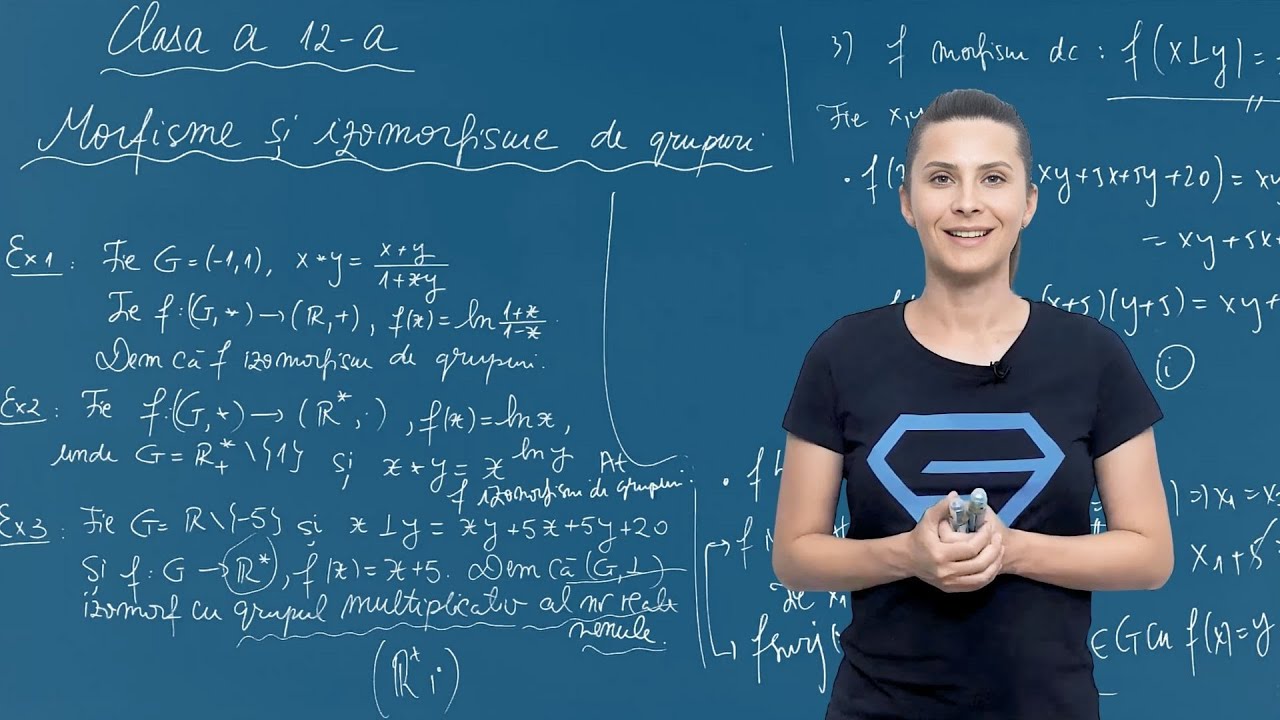 Clasa a 12-a
Morfisme și izomorfisme de grupuri
Ex1: Fie G=(-1,1), x*y= (x+y)/(1+xy)
Fie f:(G,*)→(R,+), f(x)=ln (1+x)/(1-x).
Dem că f izomorfism de grupuri.
Ex2: Fie f:(G,*)→(R*,·), f(x)=ln x,
unde G=R₊*\{1} și x*y=x^(ln y) At
f izomorfism de grupuri.
Ex3: Fie G=R\{-5} și x⊥y=xy+5x+5y+20
Și f:G→R*, f(x)=x+5. Dem că (G,⊥)
izomorf cu grupul multiplicativ al nr reale
nenule.
(R*,·)
3) f morfism dc: f(x⊥y)=
Fie x,y
·f( xy+5x+5y+20)=xy
=xy+5x
(x+5)(y+5)=xy+
(i)
· f
=)x₁=x
→f
x₁+5
x₁
→ f surj ∈G cu f(x)=y